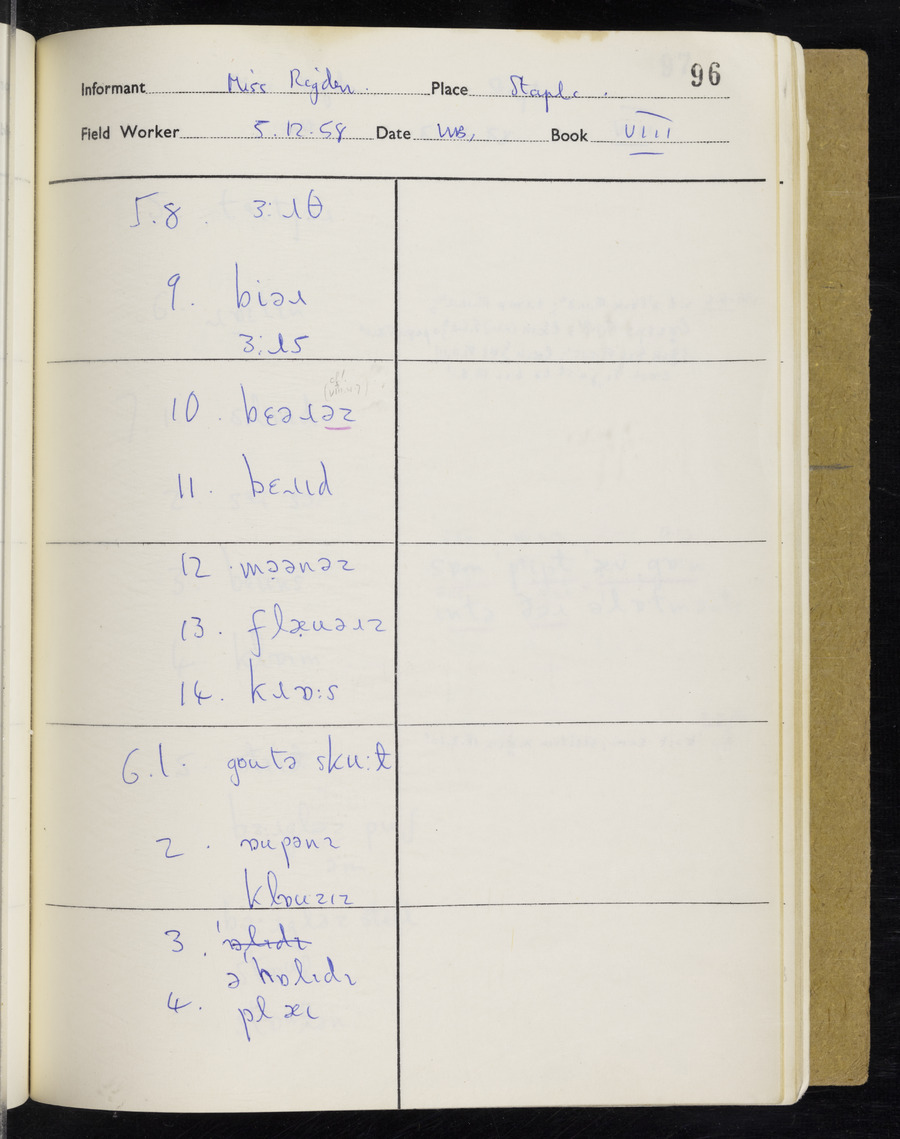 96
Informant Miss Rigden. Place Staple.
Field Worker 5.12.58 Date WB, Book VIII
5.8. ɜ:ɹθ
9. biəɹ
ɜ:ɹs
10. bɛəɹəz
11. bɛɹɪd
12. mə̣ənəz
13. flæuəɹz
14. kɹɒ:s
6.1. goutə sku:ɫ
2. ɒupənz
klouzɪz
3. ˈɒlɪdɪ
ə ˈhɒlɪdɪ
4. plæɪ